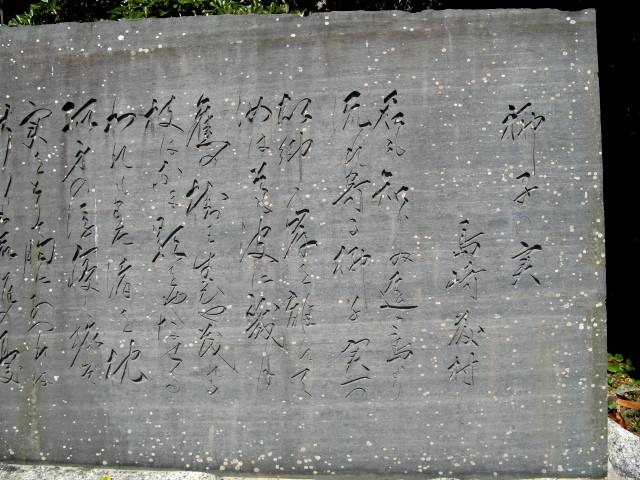 椰子の実
島崎藤村
名も知らぬ遠き島より
流れ寄る椰子の実一つ
故郷の岸を離れて
汝はそも波に幾月
舊の樹は生ひや茂れる
枝はなほ影をやなせる
われもまた渚を枕
孤身の浮寝の旅ぞ
実をとりて胸にあつれば